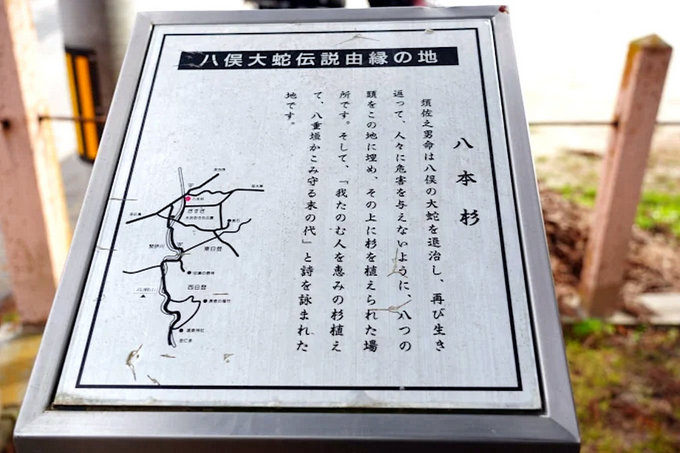 八俣大蛇伝説由縁の地
八本杉
須佐之男命は八俣の大蛇を退治し、再び生き
返って、人々に危害を与えないように、八つの
頭をこの地に埋め、その上に杉を植えられた場
所です。そして、「我たのむ人を恵みの杉植え
て、八重垣かこみ守る末の代」と詩を詠まれた
地です。
斐伊川
東日登
西日登